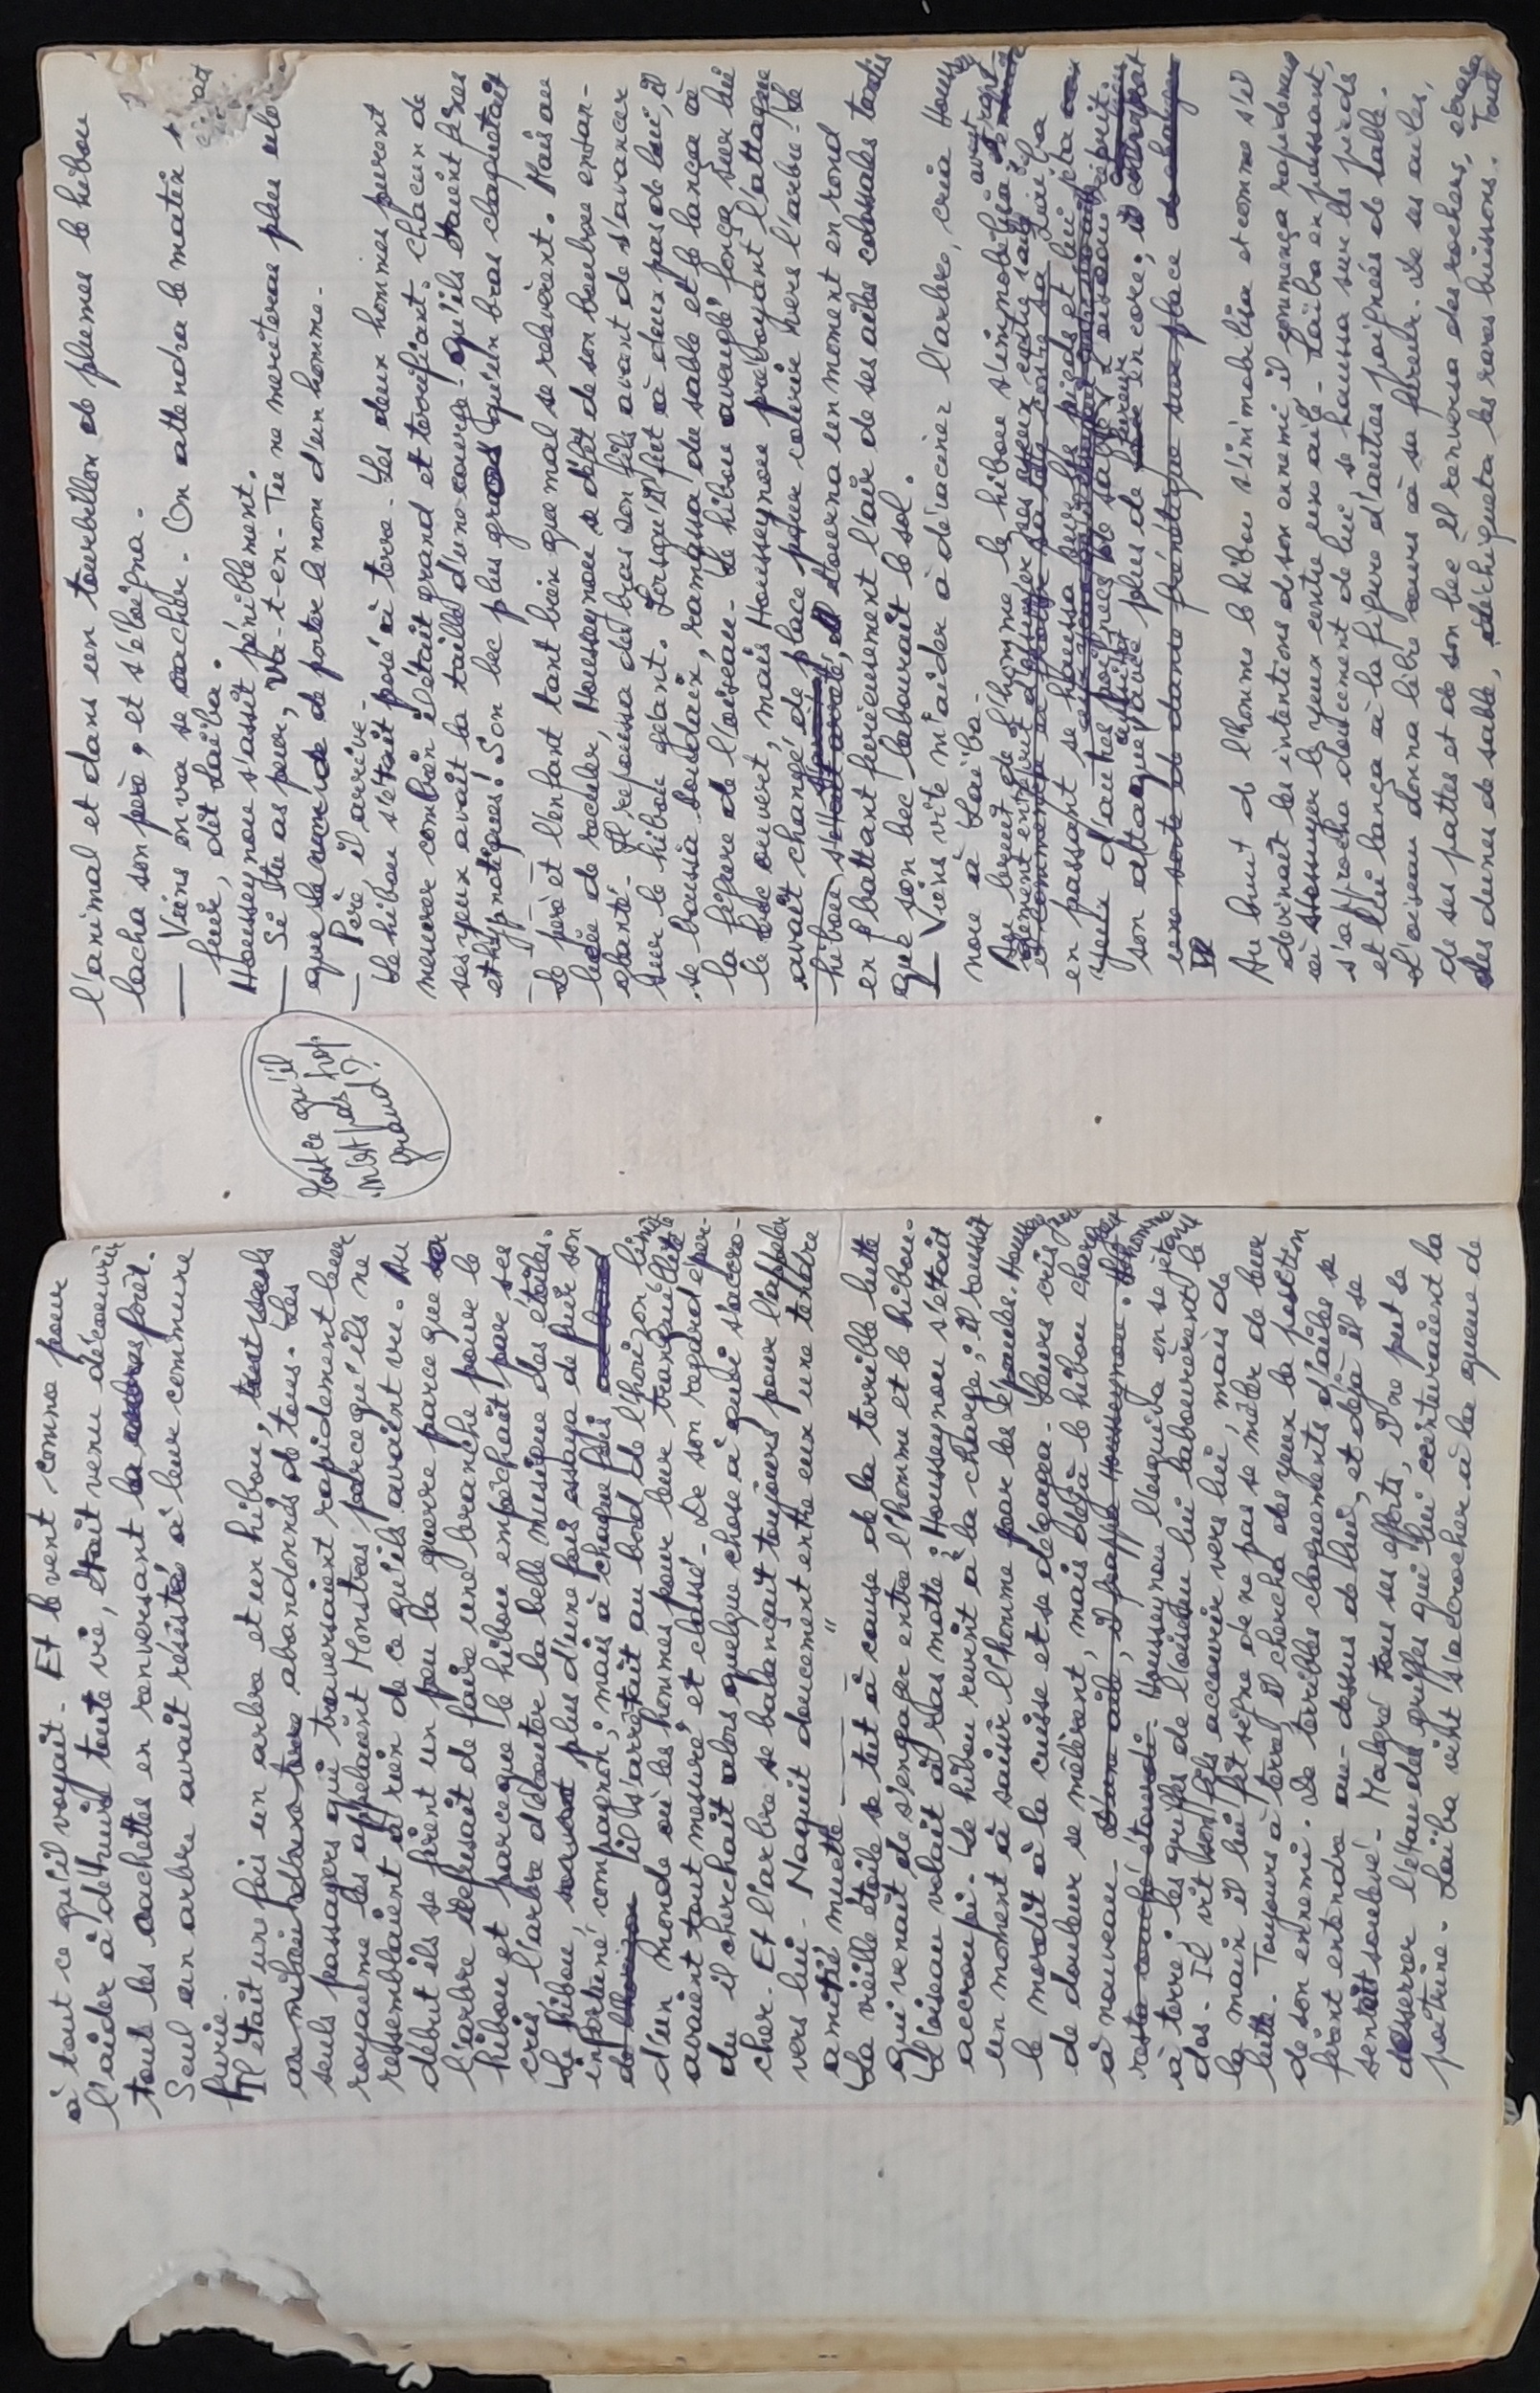 à tout ce qu'il voyait. Et le vent comme pour
l'aider à détruire toute vie, était venu découvrir
tout les cachettes en renversant la forêt.
Seul un arbre avait résisté à leur commune
furie.
Il était une fois un arbre et un hibou, tout seuls
au milieu d'une terre abandonnés de tous. Les
seuls passagers qui traversaient rapidement leur
royaume les appelaient Monstres parce qu'ils ne
ressemblaient à rien de ce qu'ils avaient vu. Au
début ils se firent un peu la guerre parce que
l'arbre refusait de faire une branche pour le
hibou et parceque le hibou empêchait par ses
cris l'arbre d'écouter la belle musique des étoiles.
Le hibou, plus d'une fois essaya de fuir son
infortuné compagnon; mais à chaque fois
il s'arrêtait au bord de l'horizon
d'un monde où les hommes pour leur tranquillité
avaient tout mesuré et classé. De son regard éper-
du il cherchait alors quelque chose à quoi s'accro-
cher. Et l'arbre se balançait toujours pour l'appeler
vers lui. Naquit doucement entre eux une tendre
amitié muette "
La vieille étoile se tut à cause de la terrible lutte
qui venait de s'engager entre l'homme et le hibou.
L'oiseau volait à ras motte; Housseynou s'était
accroupi. Le hibou revint à la charge; il réussit
un moment à saisir l'homme par les épaules.
le mordit à la cuisse et se dégagea. Leurs cris
de douleur se mêlèrent, mais déjà le hibou
à nouveau. D'une aile, il frappa Housseynou.
resta couché étourdi. Housseynou l'esquiva en se jetant
à terre; les griffes de l'oiseau lui labourèrent le
dos. Il vit son fils accourir vers lui, mais de
la main il lui fit signe de ne pas se mêler de leur
lutte. Toujours à terre, il chercha des yeux la position
de son ennemi. De terribles claquements d'ailes se
firent entendre au-dessus de lui, et déjà il se
sentait soulevé. Malgré tous ses efforts, il ne put se
desserrer l'étau des griffes qui lui ceinturaient la
poitrine. Laïba vint s'accrocher à la queue de
l'animal et dans un tourbillon de plumes le hibou
lacha son père, et s'éloigna.
— Viens on va se cacher. On attendra le matin
fuir, dit Laïba.
Housseynou s'assit péniblement.
— Si tu as peur, va-t-en. Tu ne mériteras plus
que de porter le nom d'un homme.
— Père, il arrive.
Le hibou s'était posé à terre. Les deux hommes purent
mesurer combien il était grand et terrifiant. Chacun de
ses yeux avait la taille d'une courge qu'ils étaient fixes
et hypnotiques! Son bec plus gros qu'un bras claquetait
Est ce qu'il
n'est pas trop
grand?
Le père et l'enfant tant bien que mal se relevèrent. Mais au
lieu de reculer, Housseynou se défit de son boubou ensan-
glanté. Il repoussa du bras son fils avant de s'avancer
sur le hibou géant. Lorsqu'il fut à deux pas de lui, il
se baissa soudain, ramassa du sable et le lança à
la figure de l'oiseau. Le hibou aveuglé fonça sur lui
le bec ouvert, mais Housseynou prévoyant l'attaque
avait changé de place pour courir vers l'arbre. Le
hibou tourna un moment en rond
en battant furieusement l'air de ses ailes colossales tandis
que son bec labourait le sol.
— Viens vite m'aider à déraciner l'arbre, cria
nou à Laïba.
Au bruit de l'homme le hibou s'immobilisa
en passant se haussa sur les pieds et lui jeta
yeux d'autres poignées de sable
son attaque avec plus de fureur encore; il
une sorte de danse frénétique sur place
Au bruit de l'homme le hibou s'immobilisa et comme s'il
devinait les intentions de son ennemi il commença rapidement
à s'essuyer les yeux contre une aile. Laïba en passant,
s'approcha doucement de lui, se haussa sur les pieds
et lui lança à la figure d'autres poignées de sable.
L'oiseau donna libre cours à sa fureur. De ses ailes,
de ses pattes et de son bec il renversa des rochers, écrasa
des dunes de sable, déchiqueta les rares buissons. Tout